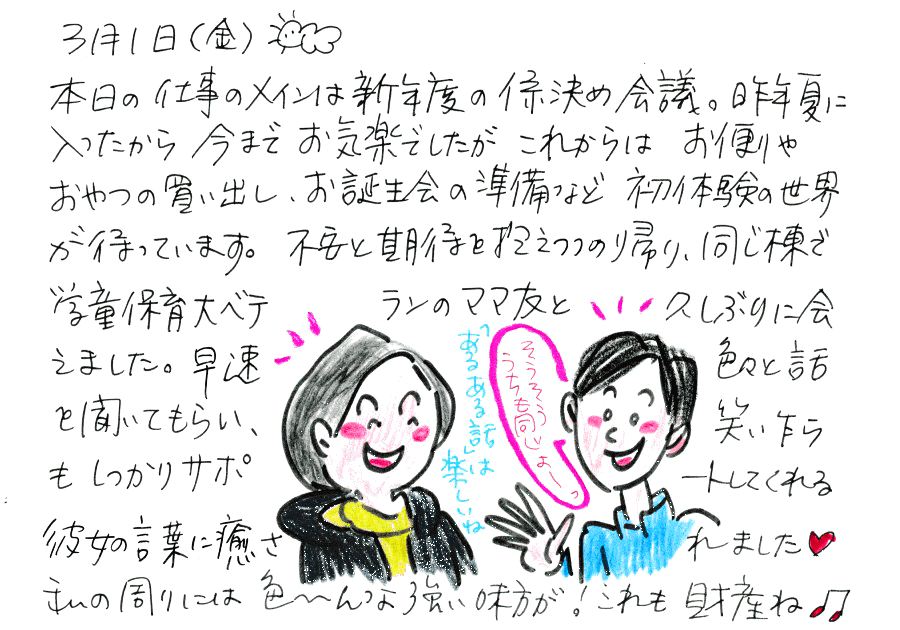 3月1日(金)
本日の仕事のメインは新年度の係決め会議。昨年夏に
入ったから今までお気楽でしたがこれからはお便りや
おやつの買い出し、お誕生会の準備など初体験の世界
が待っています。不安と期待を抱えつつの帰り、同じ棟で
学童保育大ベテランのママ友と久しぶりに会
えました。早速色々と話
を聞いてもらい、笑い乍ら
もしっかりサポートしてくれる
彼女の言葉に癒されました
私の周りには色〜んな強い味方が!これも財産ね♫
「ある ある話」は
楽しいね
そうそう
うちも同じよーっ